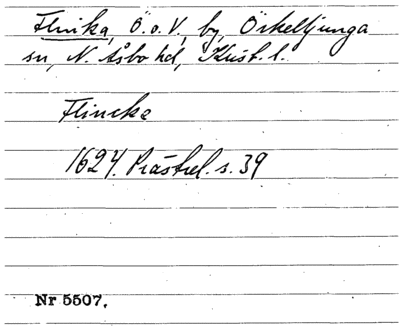 Flinka, Ö. o. V., by, Örkelljunga
sn, N. Åsbo hd, Krist. l.
Flincke
1624. Prästrel. s. 39
Nr 5507.